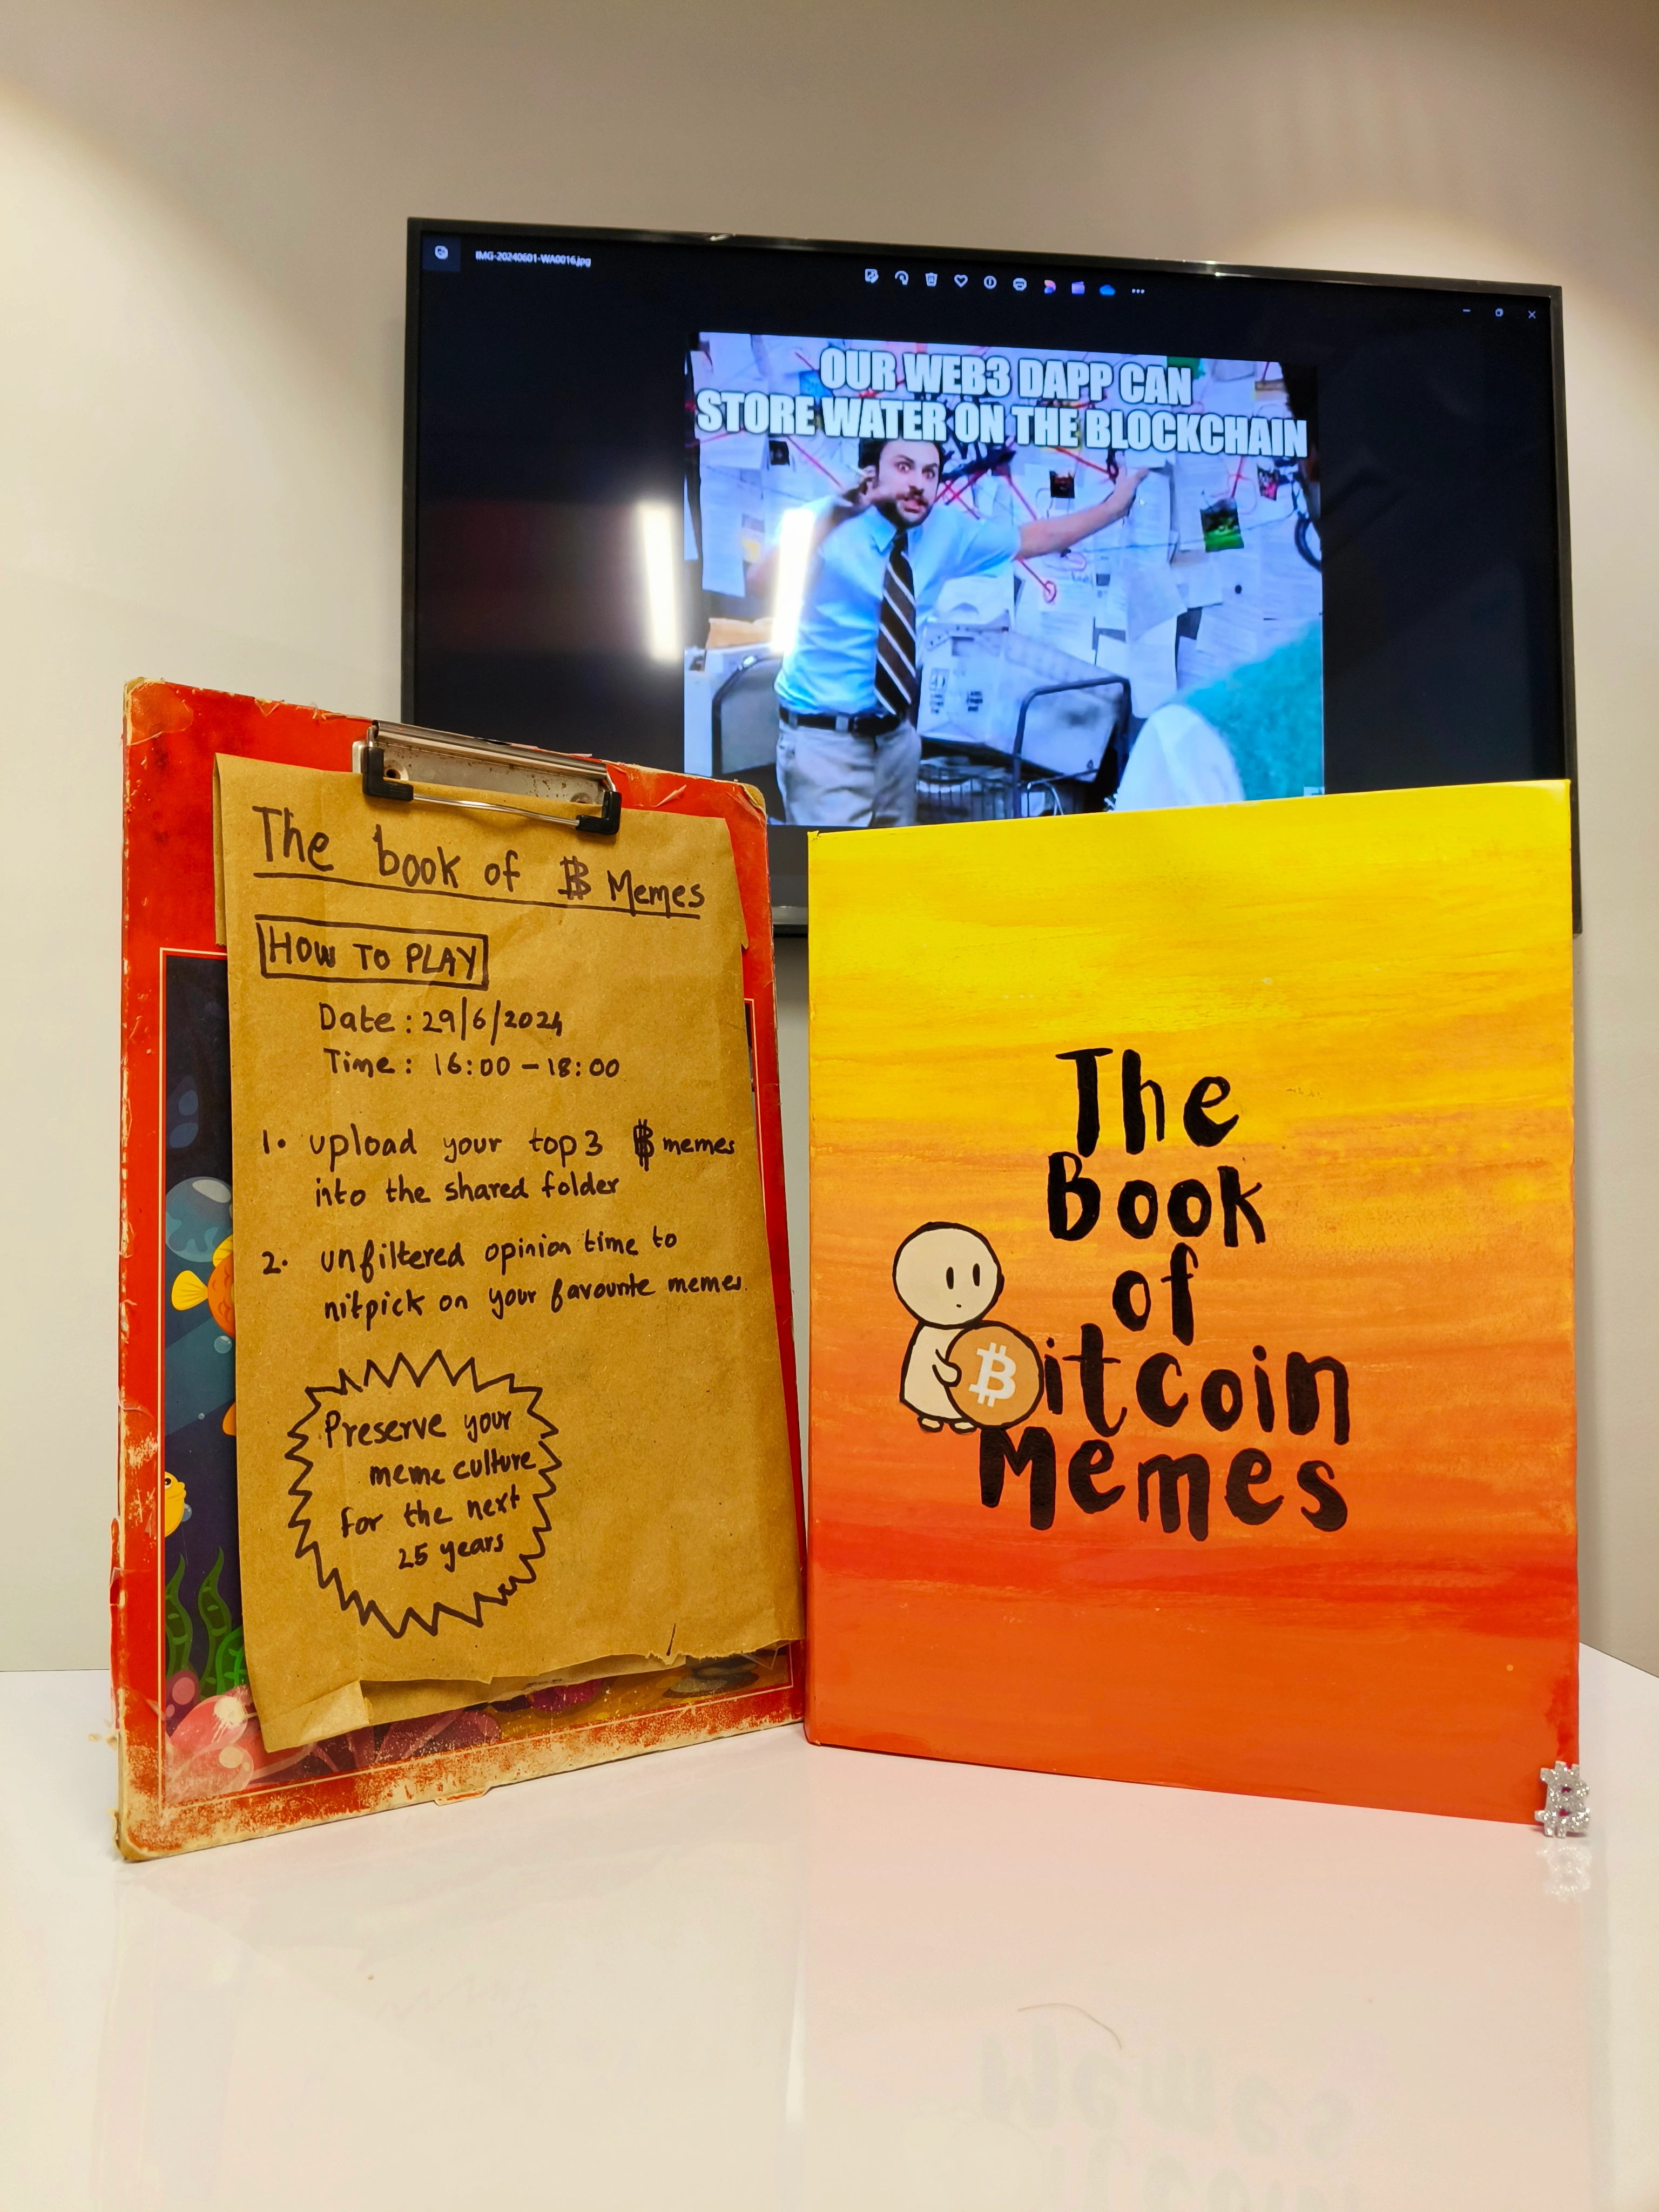 IMG-20240601-WA0016.jpg
OUR WEB3 DAPP CAN
STORE WATER ON THE BLOCKCHAIN
The book of ₿ Memes
HOW TO PLAY
Date : 29/6/2024
Time : 16:00 – 18:00
1. upload your top 3 ₿ memes
into the shared folder
2. unfiltered opinion time to
nitpick on your favourite memes.
Preserve your
meme culture
for the next
25 years
The
Book
of
₿itcoin
Memes